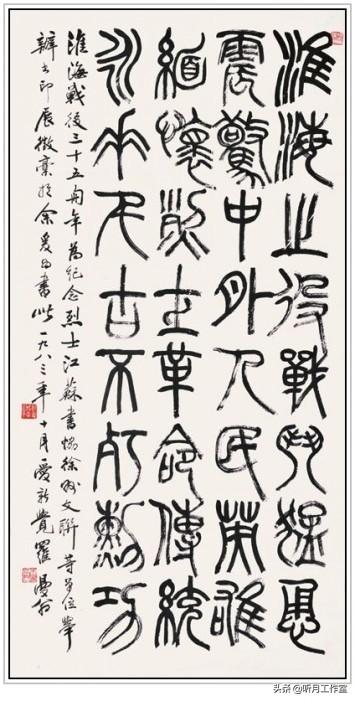 淮海之役戰鬥猛恿
震驚中外人民英雄
緬懷烈士革命傳統
永垂千古不朽勳功
淮海戰後三十五周年為紀念烈士江蘇書協徐州文聯等單位舉
辦書印展徵稾於余爰為書此一九八三年十月愛新覺羅曼翁
头条 @听月工作室